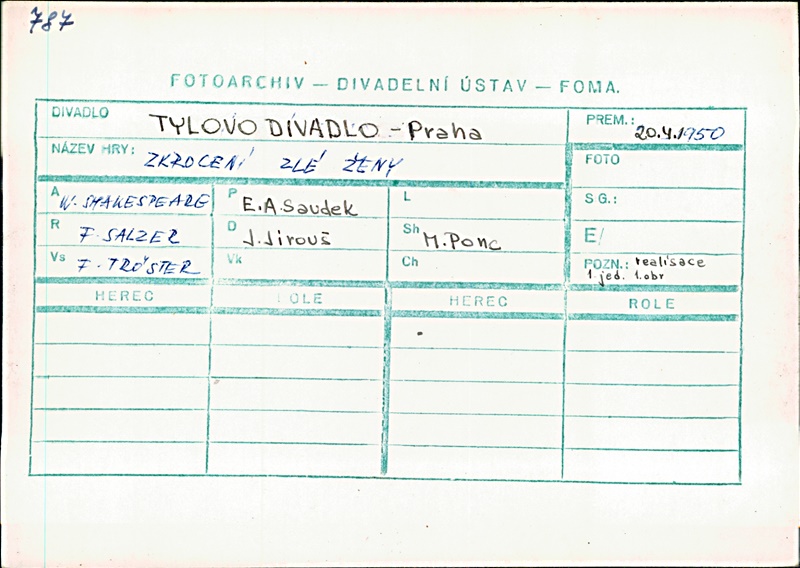 787
FOTOARCHIV — DIVADELNÍ ÚSTAV — FOMA.
DIVADLO TYLOVO DIVADLO - Praha
PREM.: 20.4.1950
NÁZEV HRY: ZKROCENÍ ZLÉ ŽENY
FOTO
A W. SHAKESPEARE P E.A.Saudek L
SG.:
R F. SALZER D J.Jirouš Sh M.Ponc
E/
Vs F. TRÖSTER Vk Ch
POZN.: realisace
1 jed. 1.obr
HEREC ROLE HEREC ROLE